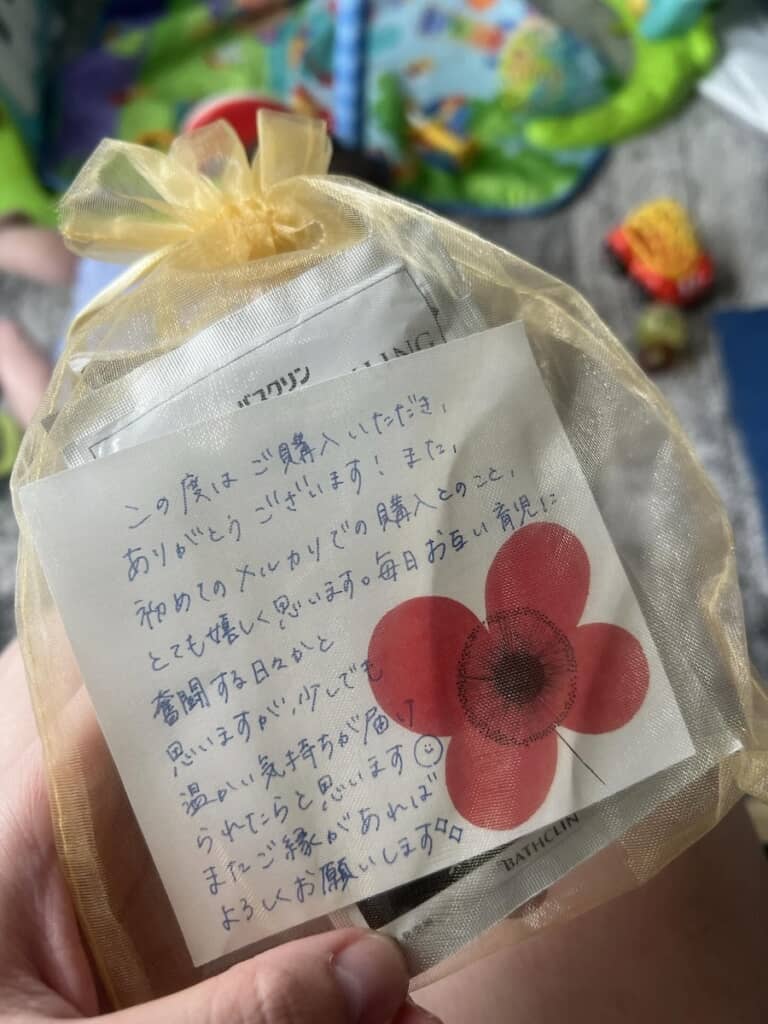 LING
バスクリン
この度は ご購入いただき、
ありがとう ございます! また、
初めての メルカリでの購入とのこと、
とても嬉しく思います。毎日お互い育児に
奮闘する日々かと
思いますが、少しでも
温かい気持ちが届け
られたらと思います
またご縁があれば
よろしくお願いします
BATHCLIN